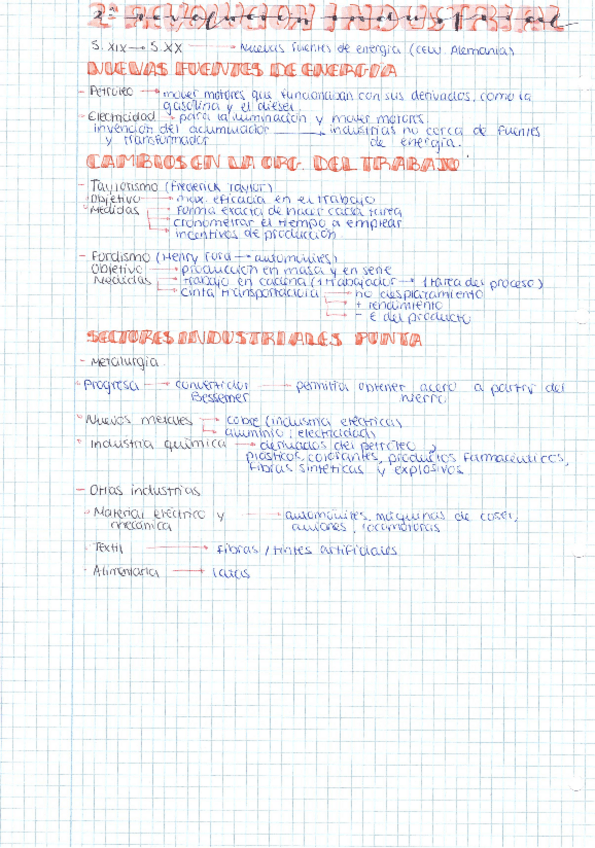 2ª REVOLUCIÓN INDUSTRIAL
S. XIX → S. XX → Nuevas fuentes de energía (EEUU. Alemania)
NUEVAS FUENTES DE ENERGÍA
- Petróleo → mover motores que funcionaban con sus derivados, como la
gasolina y el diésel.
- Electricidad → para la iluminación y mover motores.
invención del acumulador → industrias no cerca de fuentes
y transformador de energía.
CAMBIOS EN LA ORG. DEL TRABAJO
- Taylorismo (Frederick Taylor)
Objetivo → máx. eficacia en el trabajo
Medidas → forma exacta de hacer cada tarea
→ cronometrar el tiempo a emplear
→ incentivos de producción
- Fordismo (Henry Ford → automóviles)
Objetivo → producción en masa y en serie
Medidas → trabajo en cadena (1 trabajador → 1 tarea del proceso)
→ cinta transportadora → no desplazamiento
→ + rendimiento
→ - € del producto
SECTORES INDUSTRIALES PUNTA
- Metalurgia
· Progresa → convertidor → permitía obtener acero a partir del
Bessemer hierro
· Nuevos metales → cobre (industria eléctrica)
→ aluminio: electricidad
· Industria química → derivados del petróleo,
plásticos, colorantes, productos farmacéuticos,
fibras sintéticas y explosivos
- Otras industrias
· Material eléctrico y → automóviles, máquinas de coser,
mecánica aviones, locomotoras
· Textil → fibras / tintes artificiales
· Alimentaria → latas